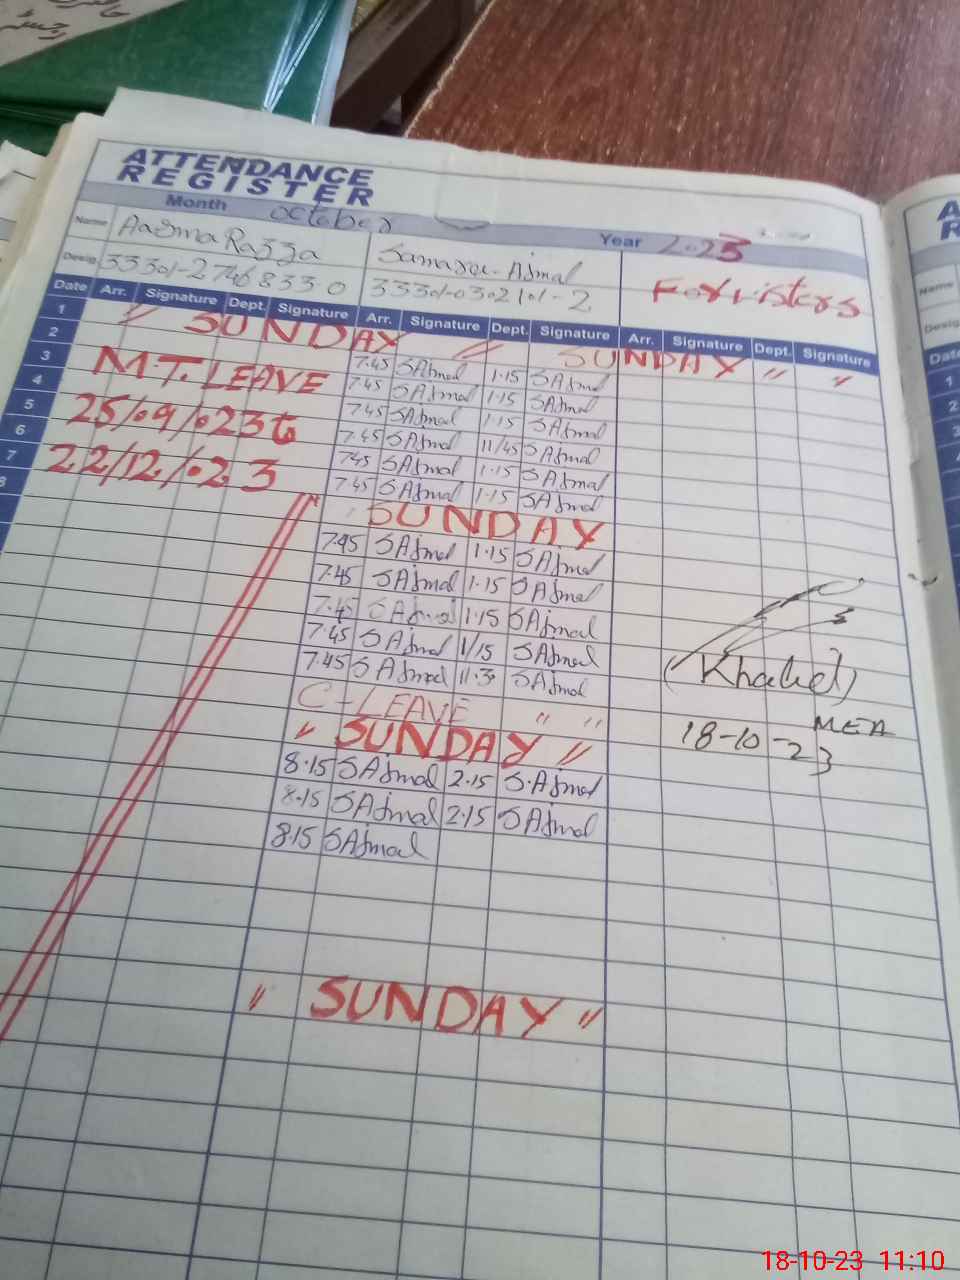 رجسٹر
ATTENDANCE
REGISTER
Month October Year 2023
Name Aasma Razza Samara-Ajmal For visters
Desig. 33301-2746833 0 33301-0302101-2
Date Arr. Signature Dept. Signature Arr. Signature Dept. Signature Arr. Signature Dept. Signature
1 " SUNDAY " SUNDAY " "
2 7.45 SAjmal 1.15 SAjmal
3 M.T. LEAVE 7.45 SAjmal 1.15 SAjmal
4 7.45 SAjmal 1.15 SAjmal
5 25/09/023 to 7.45 SAjmal 11/45 SAjmal
6 7.45 SAjmal 1.15 SAjmal
7 22/12/023 7.45 SAjmal 1.15 SAjmal
8 SUNDAY
7.45 SAjmal 1.15 SAjmal
7.45 SAjmal 1.15 SAjmal
7.45 SAjmal 1.15 SAjmal
7.45 SAjmal 1/15 SAjmal
7.45 SAjmal 11.3 SAjmal
(Khalid)
C-LEAVE " "
MEA
" SUNDAY "
18-10-23
8.15 SAjmal 2.15 S.Ajmal
8.15 SAjmal 2.15 SAjmal
8.15 SAjmal
" SUNDAY "
A
R
Name
Desig
Date
1
2
3
18-10-23 11:10